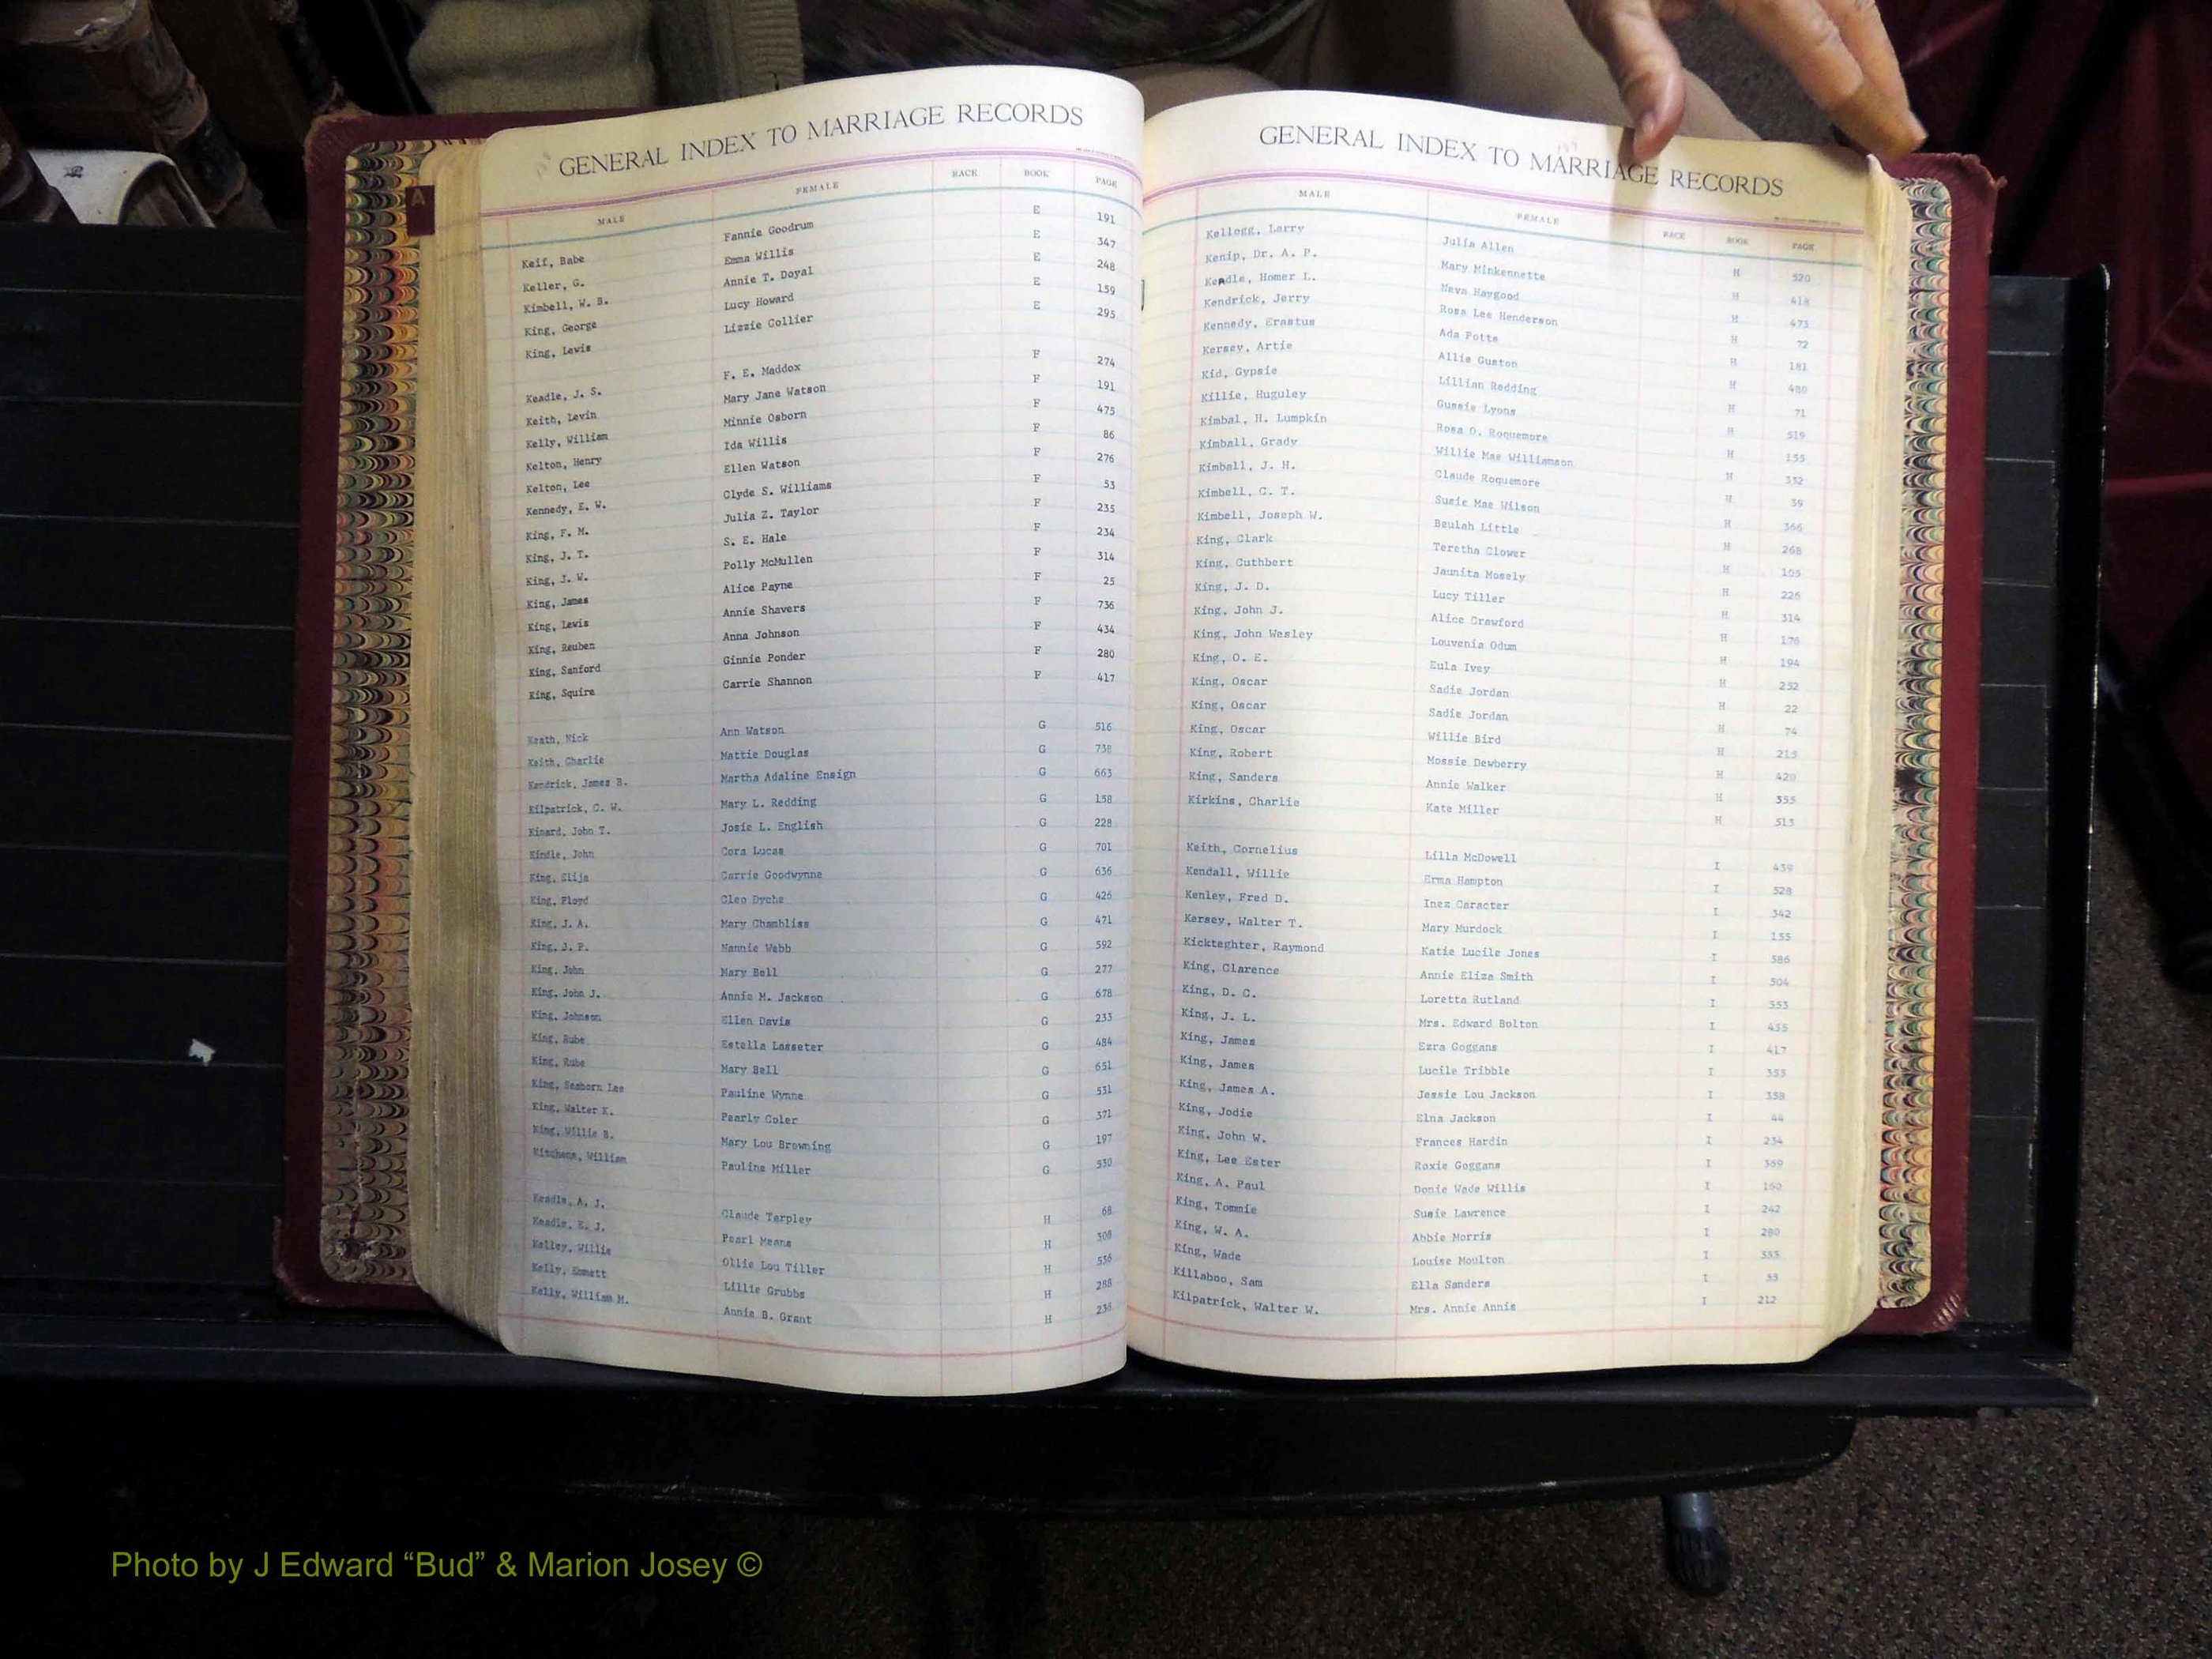 GENERAL INDEX TO MARRIAGE RECORDS
MALE FEMALE RACE BOOK PAGE
Keif, Babe Fannie Goodrum E 191
Keller, G. Emma Willis E 347
Kimbell, W. B. Annie T. Doyal E 248
King, George Lucy Howard E 159
King, Lewis Lizzie Collier E 295
Keadle, J. S. F. E. Maddox F 274
Keith, Levin Mary Jane Watson F 191
Kelly, William Minnie Osborn F 475
Kelton, Henry Ida Willis F 86
Kelton, Lee Ellen Watson F 276
Kennedy, E. W. Clyde S. Williams F 53
King, F. M. Julia Z. Taylor F 235
King, J. T. S. E. Hale F 234
King, J. W. Polly McMullen F 314
King, James Alice Payne F 25
King, Lewis Annie Shavers F 736
King, Reuben Anna Johnson F 434
King, Sanford Ginnie Ponder F 280
King, Squire Carrie Shannon F 417
Keath, Nick Ann Watson G 516
Keith, Charlie Mattie Douglas G 738
Kendrick, James B. Martha Adaline Ensign G 663
Kilpatrick, C. W. Mary L. Redding G 158
Kinard, John T. Josie L. English G 228
Kindle, John Cora Lucas G 701
King, Elija Carrie Goodwynne G 636
King, Floyd Cleo Dyche G 426
King, J. A. Mary Chambliss G 471
King, J. P. Nannie Webb G 592
King, John Mary Bell G 277
King, John J. Annie M. Jackson G 678
King, Johnson Ellen Davis G 233
King, Rube Estella Lasseter G 484
King, Rube Mary Bell G 651
King, Seaborn Lee Pauline Wynne G 531
King, Walter K. Pearly Coler G 371
King, Willie B. Mary Lou Browning G 197
Kitchens, William Pauline Miller G 530
Keadle, A. J. Claude Tarpley H 68
Keadle, E. J. Pearl Means H 308
Kelley, Willie Ollie Lou Tiller H 536
Kelly, Emmett Lillie Grubbs H 288
Kelly, William M. Annie B. Grant H 236
GENERAL INDEX TO MARRIAGE RECORDS
MALE FEMALE RACE BOOK PAGE
Kellogg, Larry Julia Allen H 520
Kenip, Dr. A. P. Mary Minkennette H 418
Keadle, Homer L. Neva Haygood H 473
Kendrick, Jerry Rosa Lee Henderson H 72
Kennedy, Erastus Ada Potts H 181
Kersey, Artie Allie Guston H 480
Kid, Gypsie Lillian Redding H 71
Killie, Huguley Gussie Lyons H 519
Kimbal, H. Lumpkin Rosa O. Roquemore H 155
Kimball, Grady Willie Mae Williamson H 332
Kimball, J. H. Claude Roquemore H 39
Kimbell, C. T. Susie Mae Wilson H 366
Kimbell, Joseph W. Beulah Little H 268
King, Clark Teretha Clower H 105
King, Cuthbert Jaunita Mosely H 226
King, J. D. Lucy Tiller H 314
King, John J. Alice Crawford H 176
King, John Wesley Louvenia Odum H 194
King, O. E. Eula Ivey H 252
King, Oscar Sadie Jordan H 22
King, Oscar Sadie Jordan H 74
King, Oscar Willie Bird H 215
King, Robert Mossie Dewberry H 420
King, Sanders Annie Walker H 355
Kirkins, Charlie Kate Miller H 513
Keith, Cornelius Lilla McDowell I 439
Kendall, Willie Erma Hampton I 528
Kenley, Fred D. Inez Caracter I 342
Kersey, Walter T. Mary Murdock I 155
Kickteghter, Raymond Katie Lucile Jones I 586
King, Clarence Annie Eliza Smith I 504
King, D. C. Loretta Rutland I 553
King, J. L. Mrs. Edward Bolton I 435
King, James Ezra Goggans I 417
King, James Lucile Tribble I 353
King, James A. Jessie Lou Jackson I 358
King, Jodie Elna Jackson I 44
King, John W. Frances Hardin I 234
King, Lee Ester Roxie Goggans I 369
King, A. Paul Donie Wade Willis I 160
King, Tommie Susie Lawrence I 242
King, W. A. Abbie Morris I 280
King, Wade Louise Moulton I 335
Killaboo, Sam Ella Sanders I 33
Kilpatrick, Walter W. Mrs. Annie Annis I 212
A
Photo by J Edward “Bud” & Marion Josey ©